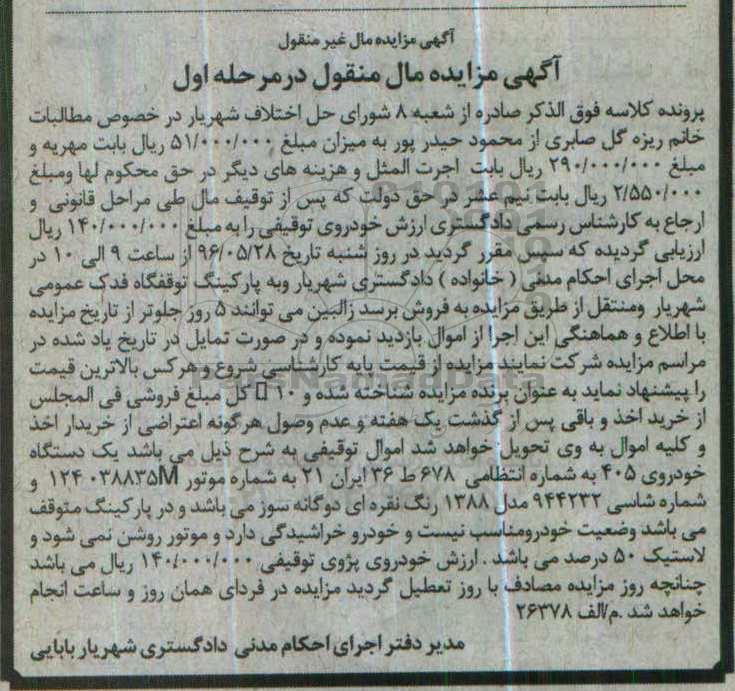 آگهی مزایده مال غیر منقول
آگهی مزایده مال منقول در مرحله اول
پرونده کلاسه فوق الذکر صادره از شعبه ۸ شورای حل اختلاف شهریار در خصوص مطالبات
خانم ریزه گل صابری از محمود حیدر پور به میزان مبلغ ۵۱/۰۰۰/۰۰۰ ریال بابت مهریه و
مبلغ ۲۹۰/۰۰۰/۰۰۰ ریال بابت اجرت المثل و هزینه های دیگر در حق محکوم لها ومبلغ
۲/۵۵۰/۰۰۰ ریال بابت نیم عشر در حق دولت که پس از توقیف مال طی مراحل قانونی و
ارجاع به کارشناس رسمی دادگستری ارزش خودروی توقیفی را به مبلغ ۱۴۰/۰۰۰/۰۰۰ ریال
ارزیابی گردیده که سپس مقرر گردید در روز شنبه تاریخ ۹۶/۰۵/۲۸ از ساعت ۹ الی ۱۰ در
محل اجرای احکام مدنی ( خانواده ) دادگستری شهریار وبه پارکینگ توقفگاه فدک عمومی
شهریار ومنتقل از طریق مزایده به فروش برسد زالبین می توانند ۵ روز جلوتر از تاریخ مزایده
با اطلاع و هماهنگی این اجرا از اموال بازدید نموده و در صورت تمایل در تاریخ یاد شده در
مراسم مزایده شرکت نمایند مزایده از قیمت پایه کارشناسی شروع و هر کس بالاترین قیمت
را پیشنهاد نماید به عنوان برنده مزایده شناخته شده و ۱۰ کل مبلغ فروشی فی المجلس
از خرید اخذ و باقی پس از گذشت یک هفته و عدم وصول هرگونه اعتراضی از خریدار اخذ
و کلیه اموال به وی تحویل خواهد شد اموال توقیفی به شرح ذیل می باشد یک دستگاه
خودروی ۴۰۵ به شماره انتظامی ۶۷۸ ط ۳۶ ایران ۲۱ به شماره موتور ۱۲۴۰۳۸۸۳۵M و
شماره شاسی ۹۴۴۲۳۲ مدل ۱۳۸۸ رنگ نقره ای دوگانه سوز می باشد و در پارکینگ متوقف
می باشد وضعیت خودرومناسب نیست و خودرو خراشیدگی دارد و موتور روشن نمی شود و
لاستیک ۵۰ درصد می باشد . ارزش خودروی پژوی توقیفی ۱۴۰/۰۰۰/۰۰۰ ریال می باشد
چنانچه روز مزایده مصادف با روز تعطیل گردید مزایده در فردای همان روز و ساعت انجام
خواهد شد .م/الف ۲۶۳۷۸
مدیر دفتر اجرای احکام مدنی دادگستری شهریار بابایی
ParsNamadData